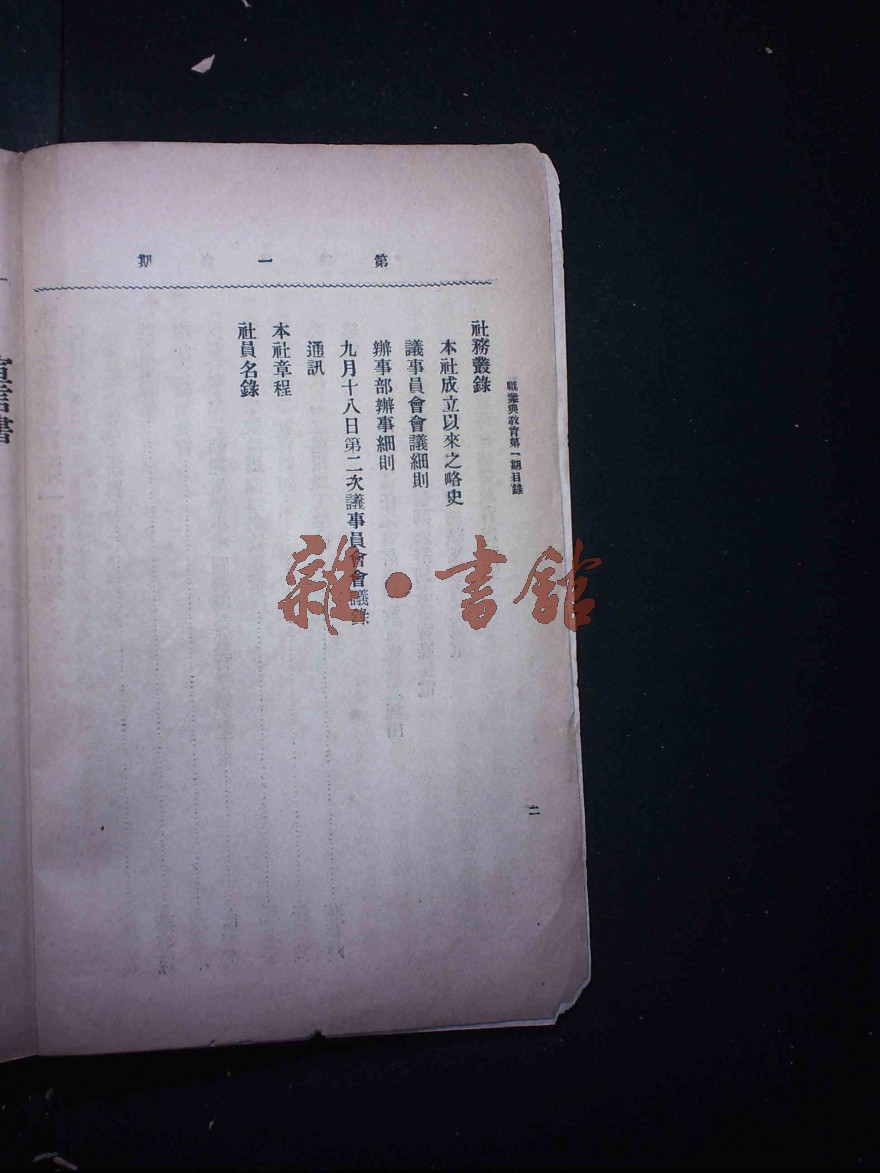 第一期
職業與教育第一期目錄
社務叢錄
本社成立以來之略史
議事員會會議細則
辦事部辦事細則
九月十八日第二次議事員會會議錄
通訊
本社章程
社員名錄
二
宣言書
雜·書館